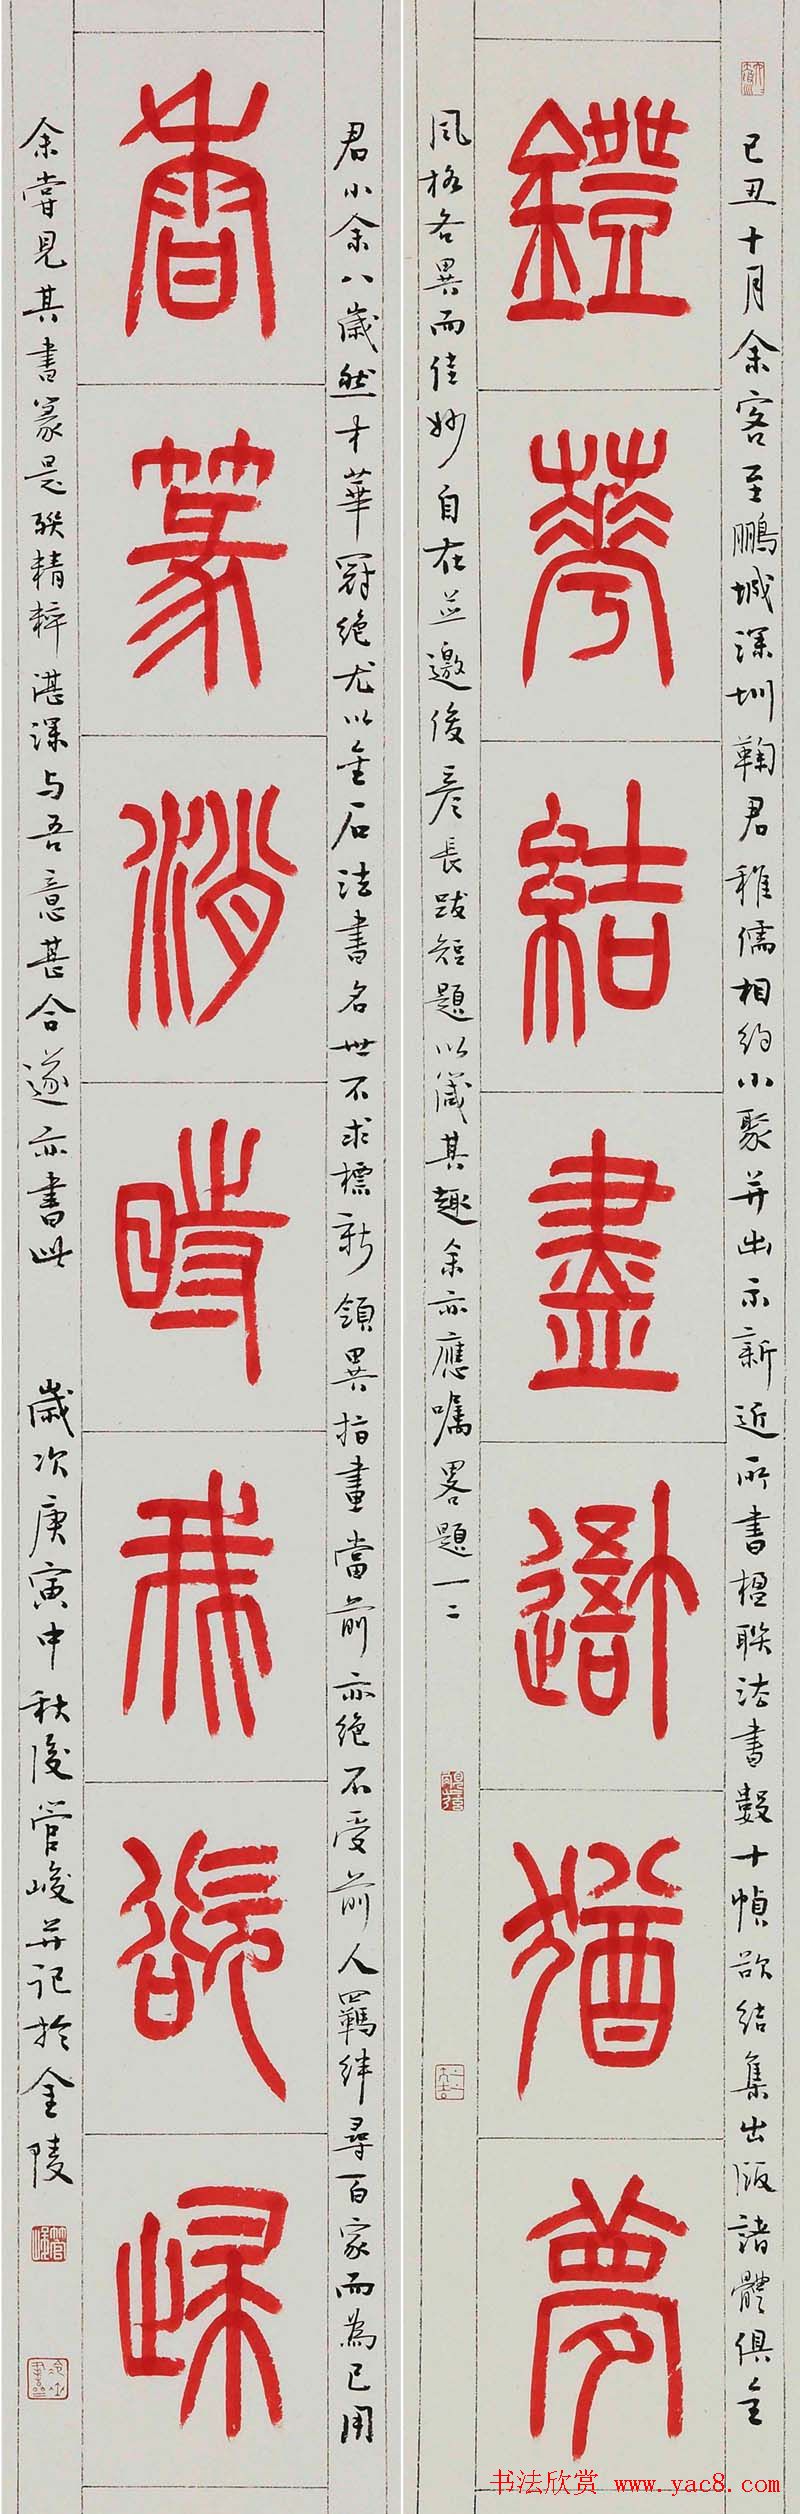 己丑十月余客至鵬城深圳鞠君稚儒相約小聚并出示新近所書楹聯法書數十幀欲結集出版諸體俱全
鐙華結盡吾猶夢
風格各異而佳妙自在並邀俊彥長跋短題以箴其趣余亦應囑畧題一二
君小余八歲然才華冠絕尤以金石法書名世不求標新領異指畫當前亦絕不受前人羈絆尋百家而為己用
香篆消時我欲歸
余嘗見其書篆是聯精粹湛深与吾意甚合遂亦書此 歲次庚寅中秋後管峻并記於金陵
书法欣赏 www.yac8.com